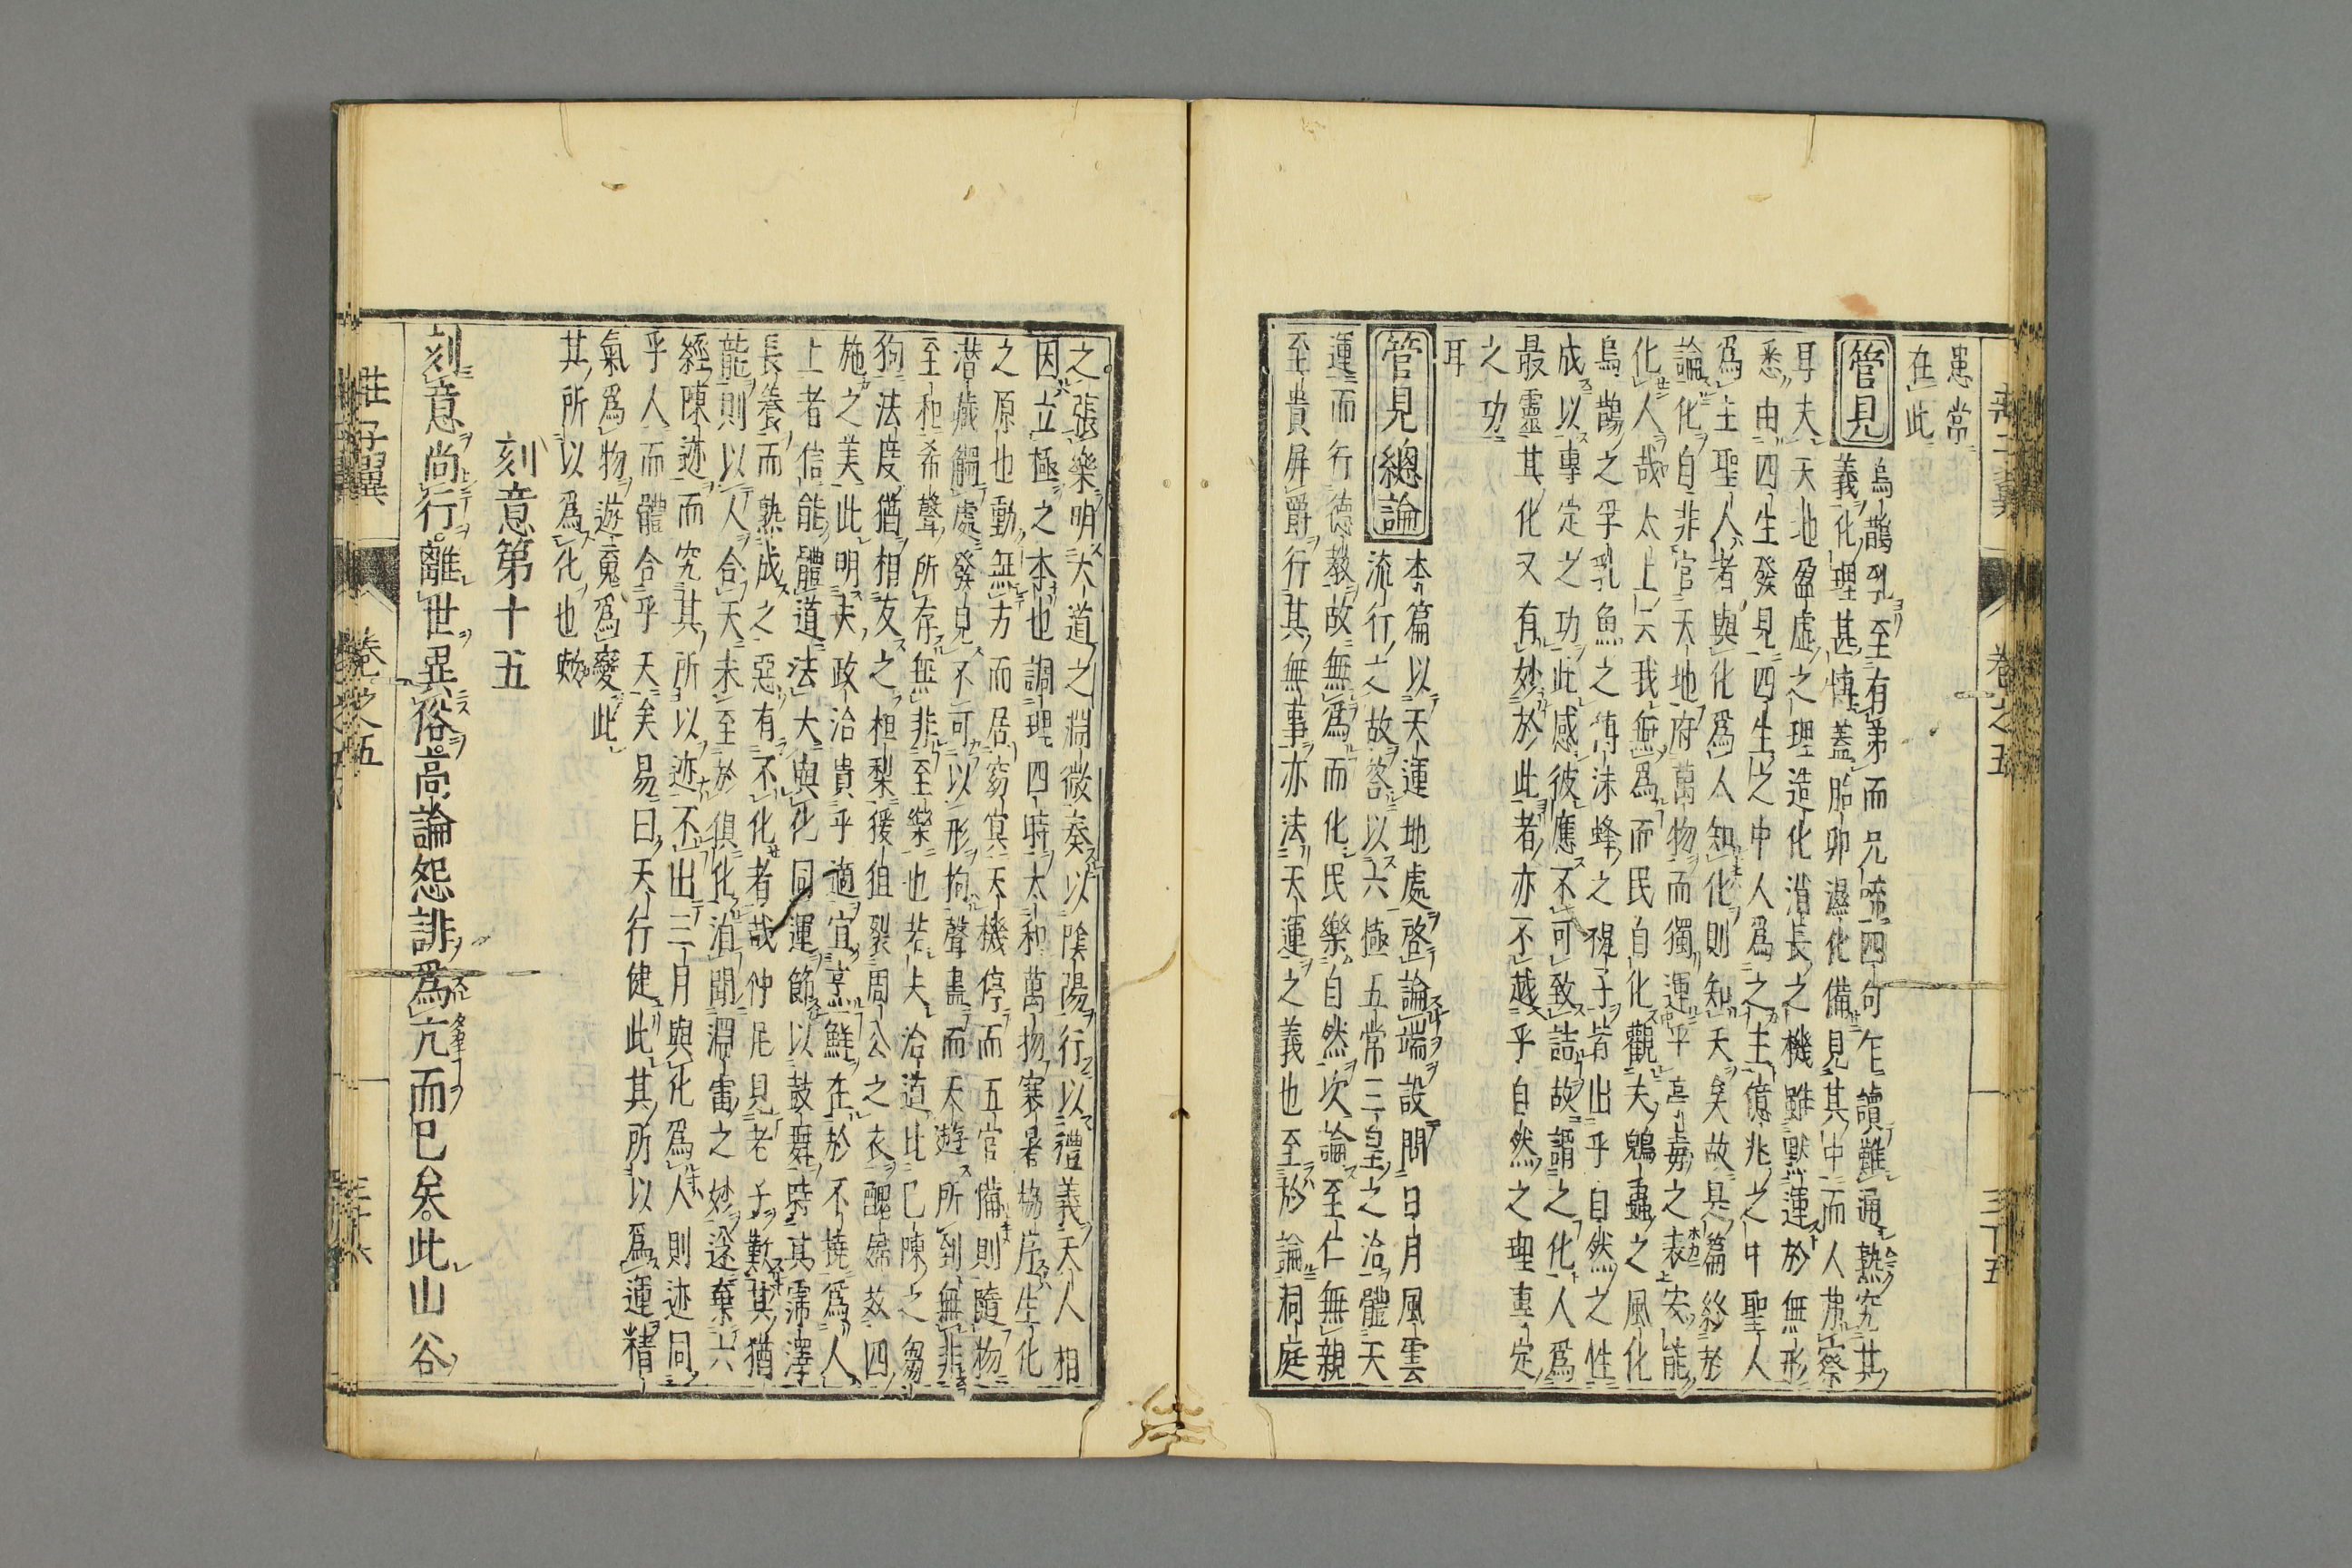 愚常
在此
管見
烏鵲孔至有弟而兄啼四句乍讀難通熟究其
義化理甚慱蓋胎卵濕化備見其中而人弗察
耳夫天地盈虛之理造化消長之機雖黙運於無形
悉由四生發見四生之中人為之主億兆之中聖人
為主聖人者與化為人知化則知天矣故是篇終於
論化自非官天地府萬物而獨運乎亭毒之表安能
化人哉太上云我無為而民自化觀夫鵙蟲之風化
烏鵲之孚乳魚之傳沫蜂之視子皆出乎自然之性
成以專定之功此感彼應不可致詰故謂之化人為
最靈其化又有妙於此者亦不越乎自然之理專定
之功
耳
管見總論
本篇以天運地處啓論端設問日月風雲
流行之故答以六極五常三皇之治體天
運而行德教故無為而化民樂自然次論至仁無親
至貴屏爵行其無事亦法天運之義也至於論洞庭
莊子翼
卷之五
三十五
之張樂明大道之淵微奏以陰陽行以禮義天人相
因立極之本也調理四時太和萬物寒暑協序生化
之原也動無方而居窈冥天機停而五官備則隨物
潜藏觸處發見不可以形拘聲盡而天遊所到無非
至和希聲所存無非至樂也若夫治道比已陳之芻
狗法度猶相友之柤梨猨狙裂周公之衣醜婦效四
施之美此明夫政治貴乎適宜烹鮮在於不撓為人
上者信能體道法大與化同運節以鼓舞時其霈澤
長養而熟成之惡有不化者哉仲尼見老子歎其猶
龍則以人合天未至於俱化洎聞淵雷之妙遂棄六
經陳迹而究其所以迹不出三月與化為人則迹同
乎人而體合乎天矣易曰天行健此其所以為運精
氣為物遊魂為變此
其所以為化也歟
刻意第十五
刻意尚行離世異俗高論怨誹為亢而已矣此山谷
莊子翼
卷之五